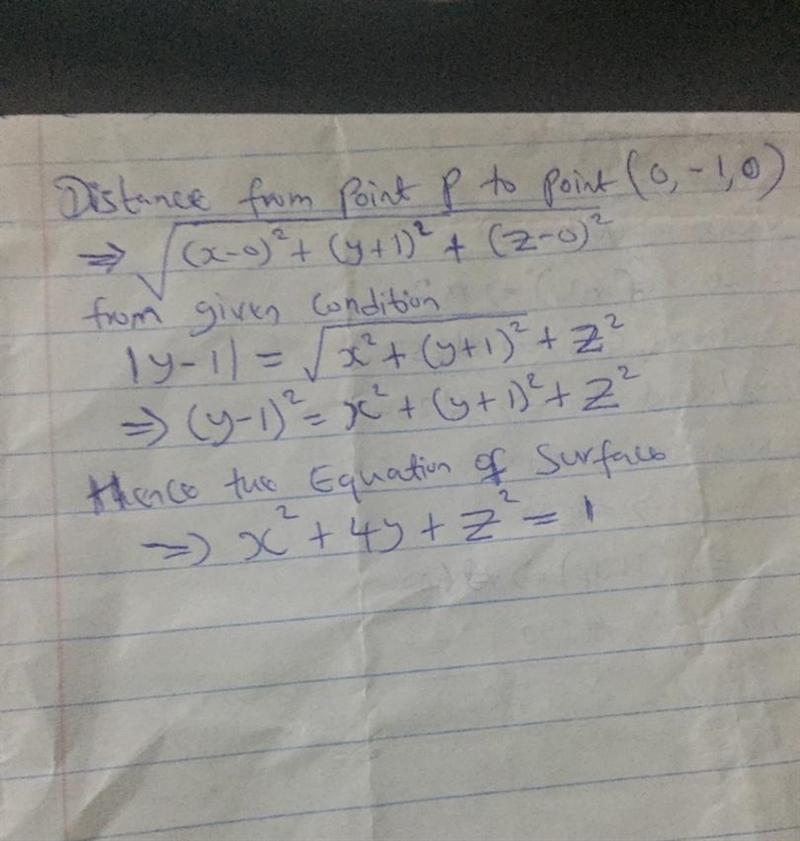 Distance from Point P to point (0, -1, 0)
⇒ √(x-0)² + (y+1)² + (z-0)²
from given condition
|y-1| = √x² + (y+1)² + z²
⇒ (y-1)² = x² + (y+1)² + z²
Hence the Equation of Surface
⇒ x² + 4y + z² = 1